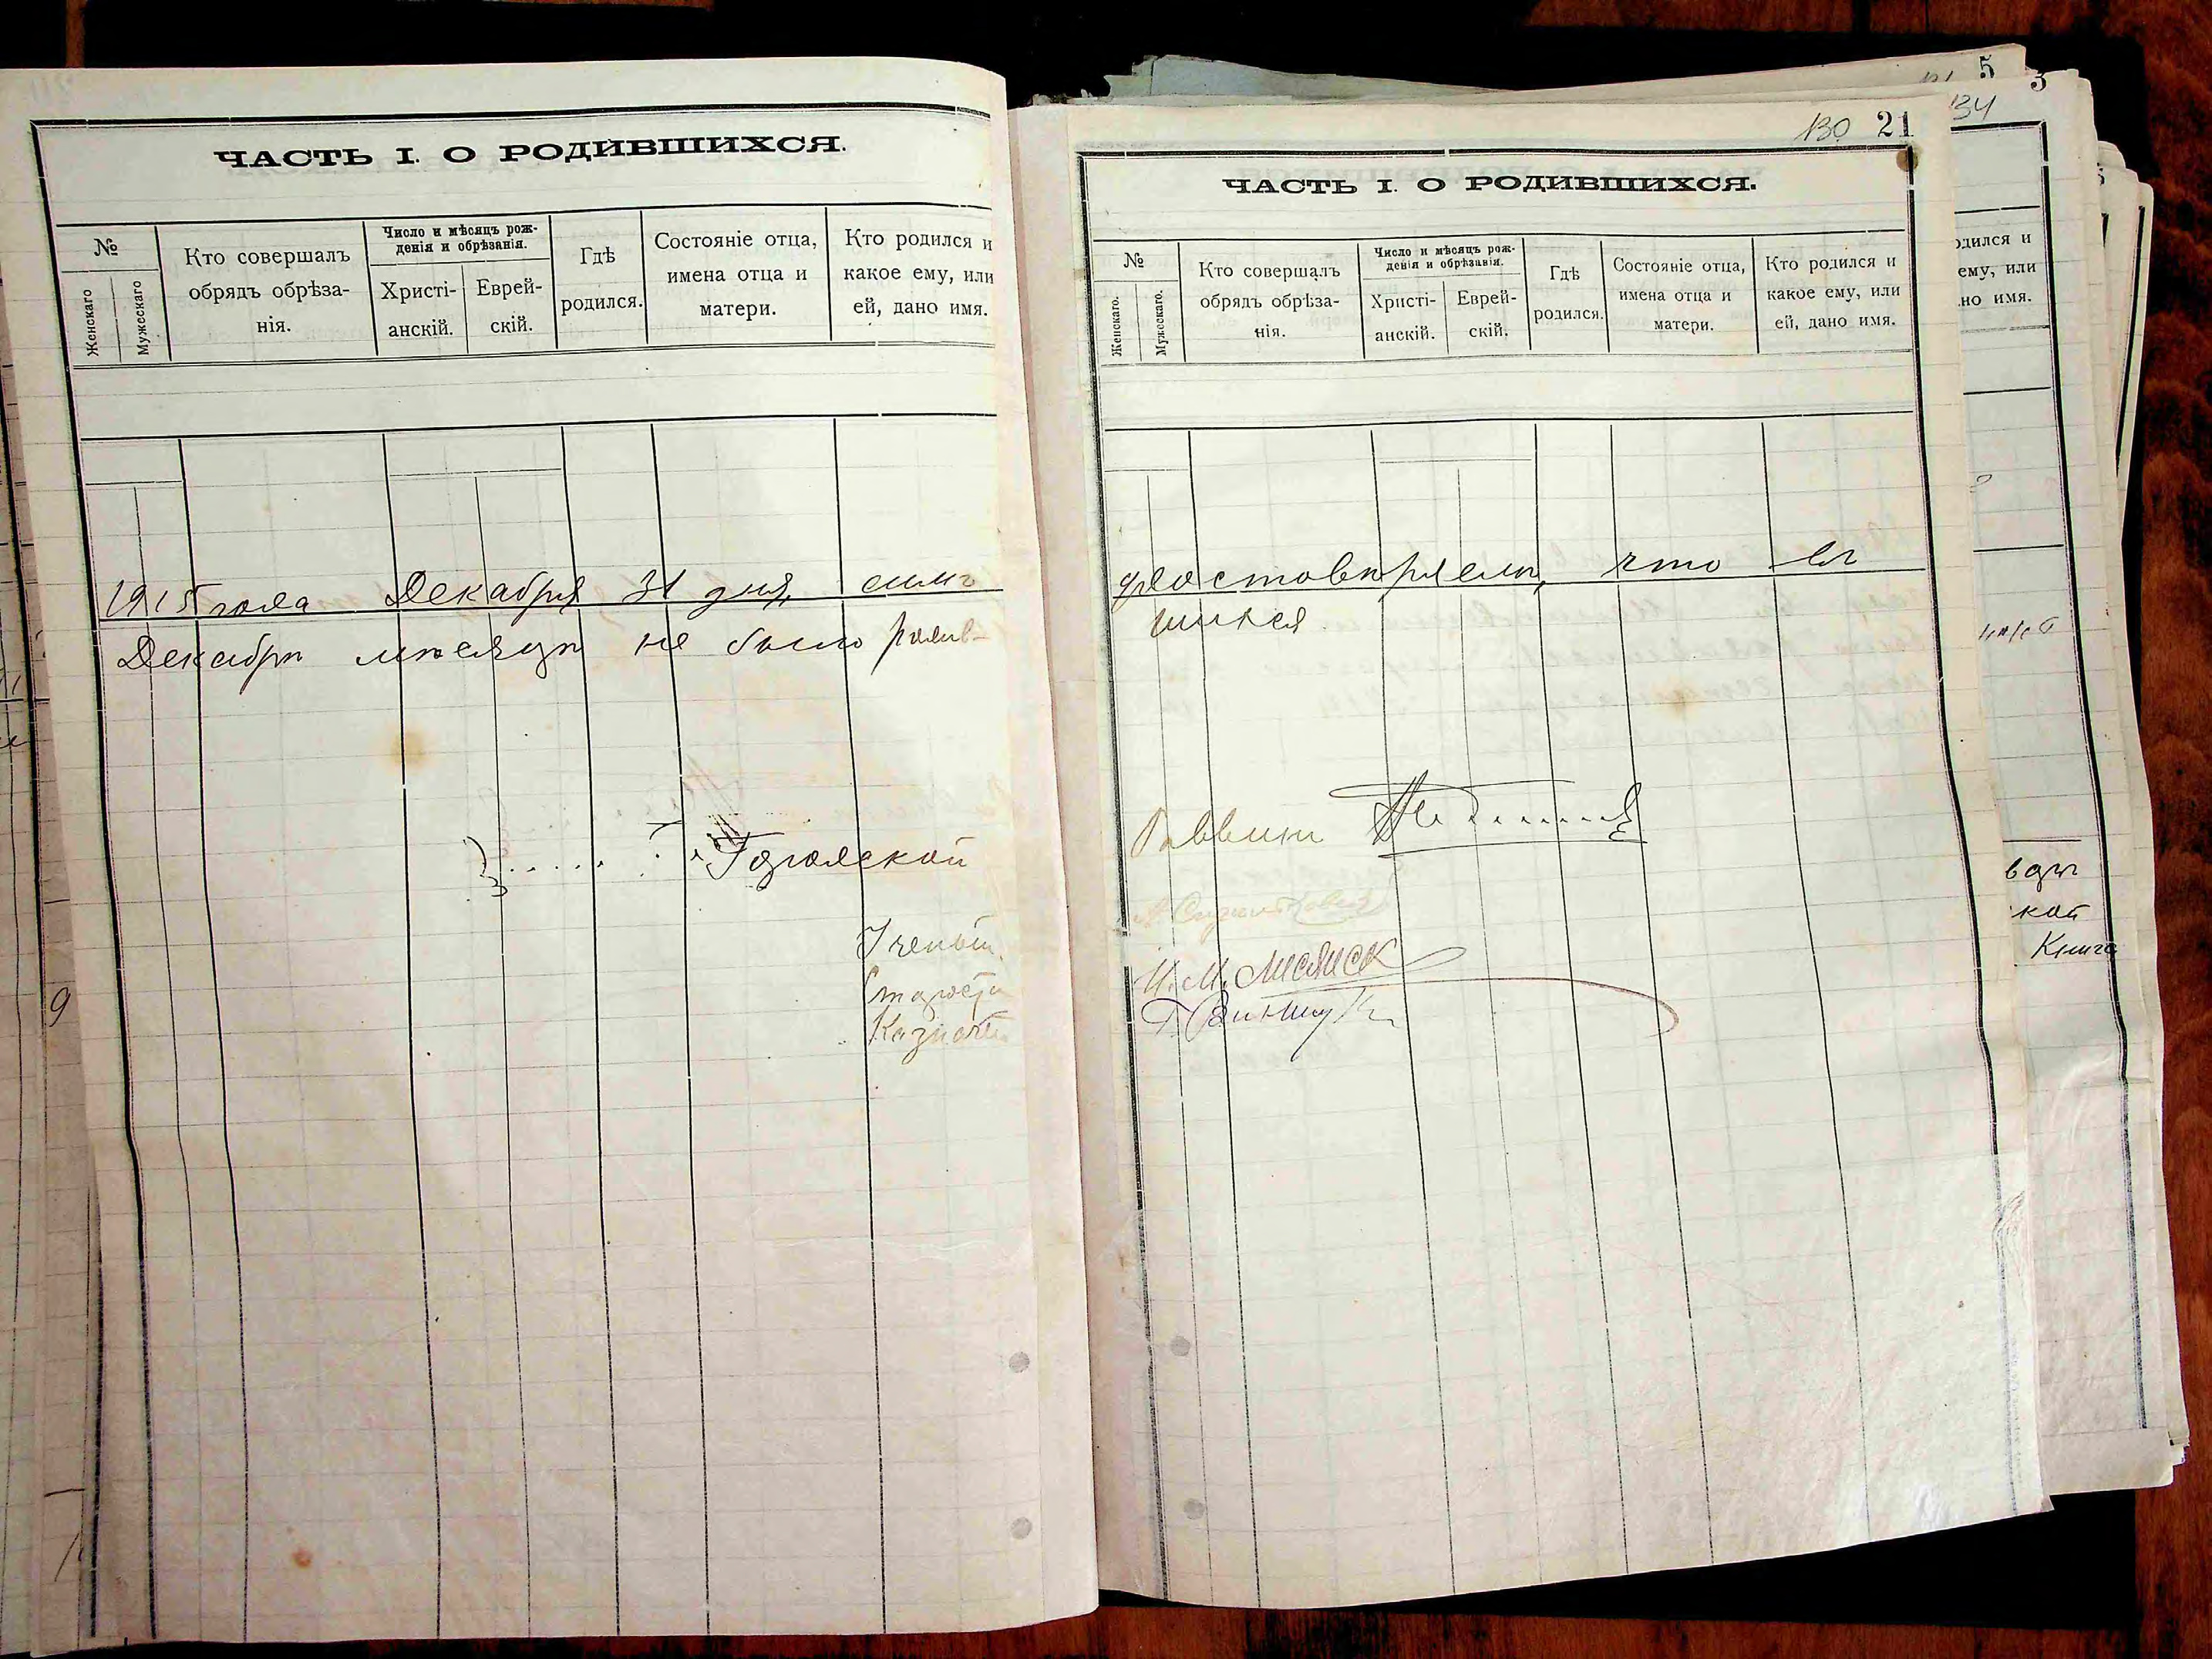 ЧАСТЬ I. О РОДИВШИХСЯ.
№
Женскаго
Мужескаго
Кто совершалъ обрядъ обрѣза-
нія.
Число и мѣсяцъ рож-
денія и обрѣзанія.
Христі-
анскій.
Еврей-
скій.
Гдѣ
родился.
Состояніе отца,
имена отца и
матери.
Кто родился и
какое ему, или
ей, дано имя.
1915 года Декабря 31 дня, симъ
Декабрѣ мѣсяцѣ не было родив-
Ученый
Староста
Казначей
130 21
ЧАСТЬ I. О РОДИВШИХСЯ.
№
Женскаго.
Мужескаго.
Кто совершалъ
обрядъ обрѣза-
нія.
Число и мѣсяцъ рож-
денія и обрѣзанія.
Христі-
анскій.
Еврей-
скій.
Гдѣ
родился.
Состояніе отца,
имена отца и
матери.
Кто родился и
какое ему, или
ей, дано имя.
удостовѣряемъ, что въ
шихся.
Раввинъ
5
134
3
одился и
ему, или
но имя.
кой
Книга
9